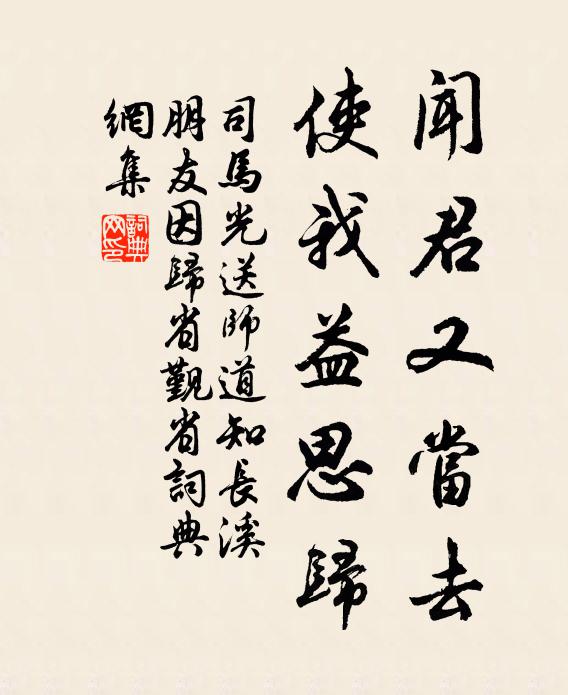 聞君又當去
使我益思歸
司馬光送師道知長溪
朋友因歸省覲省詞典
網集
詞典
网印